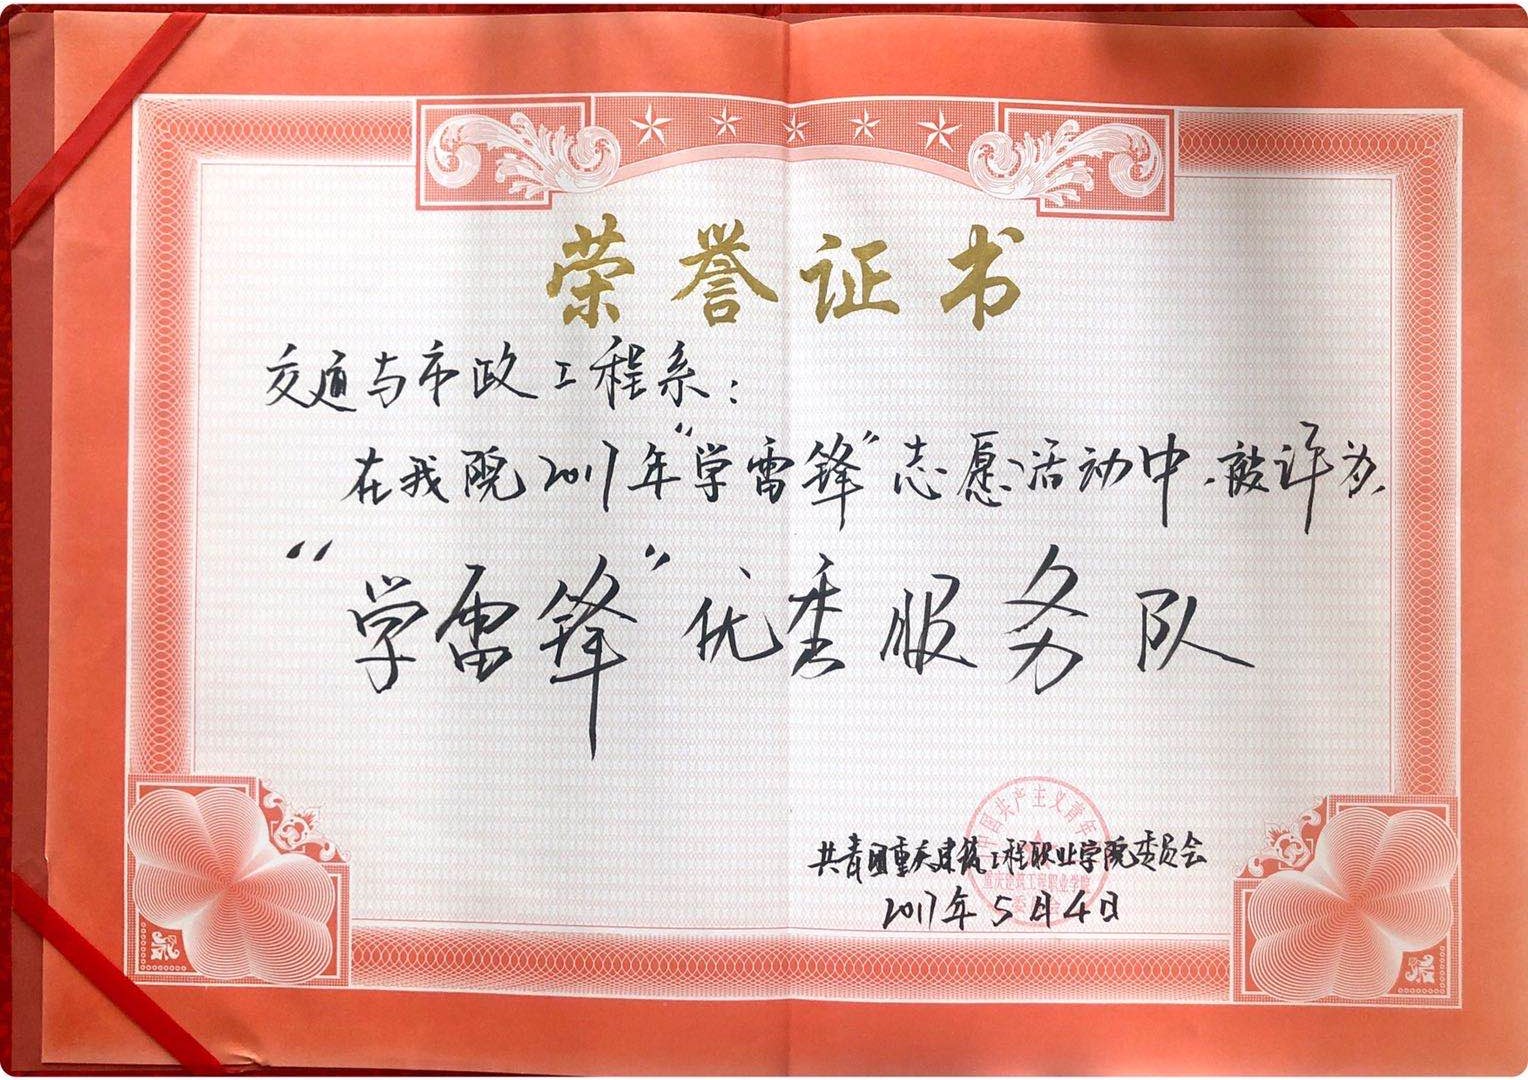 荣誉证书
交通与市政工程系：
在我院2017年“学雷锋”志愿活动中，被评为
“学雷锋”优秀服务队
共青团重庆建筑工程职业学院委员会
2017年5月4日
中国共产主义青年团
重庆建筑工程职业学院
委员会